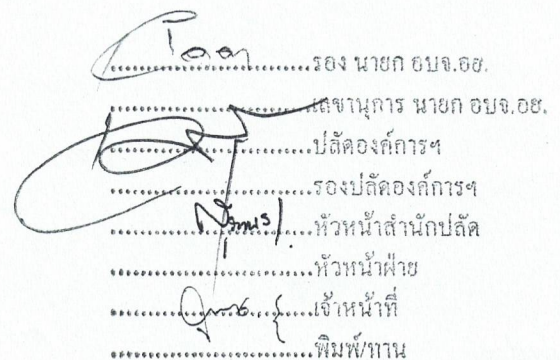 ....................รอง นายก อบจ.อย.
....................เลขานุการ นายก อบจ.อย.
....................ปลัดองค์การฯ
....................รองปลัดองค์การฯ
....................หัวหน้าสำนักปลัด
....................หัวหน้าฝ่าย
....................เจ้าหน้าที่
....................พิมพ์/ทาน